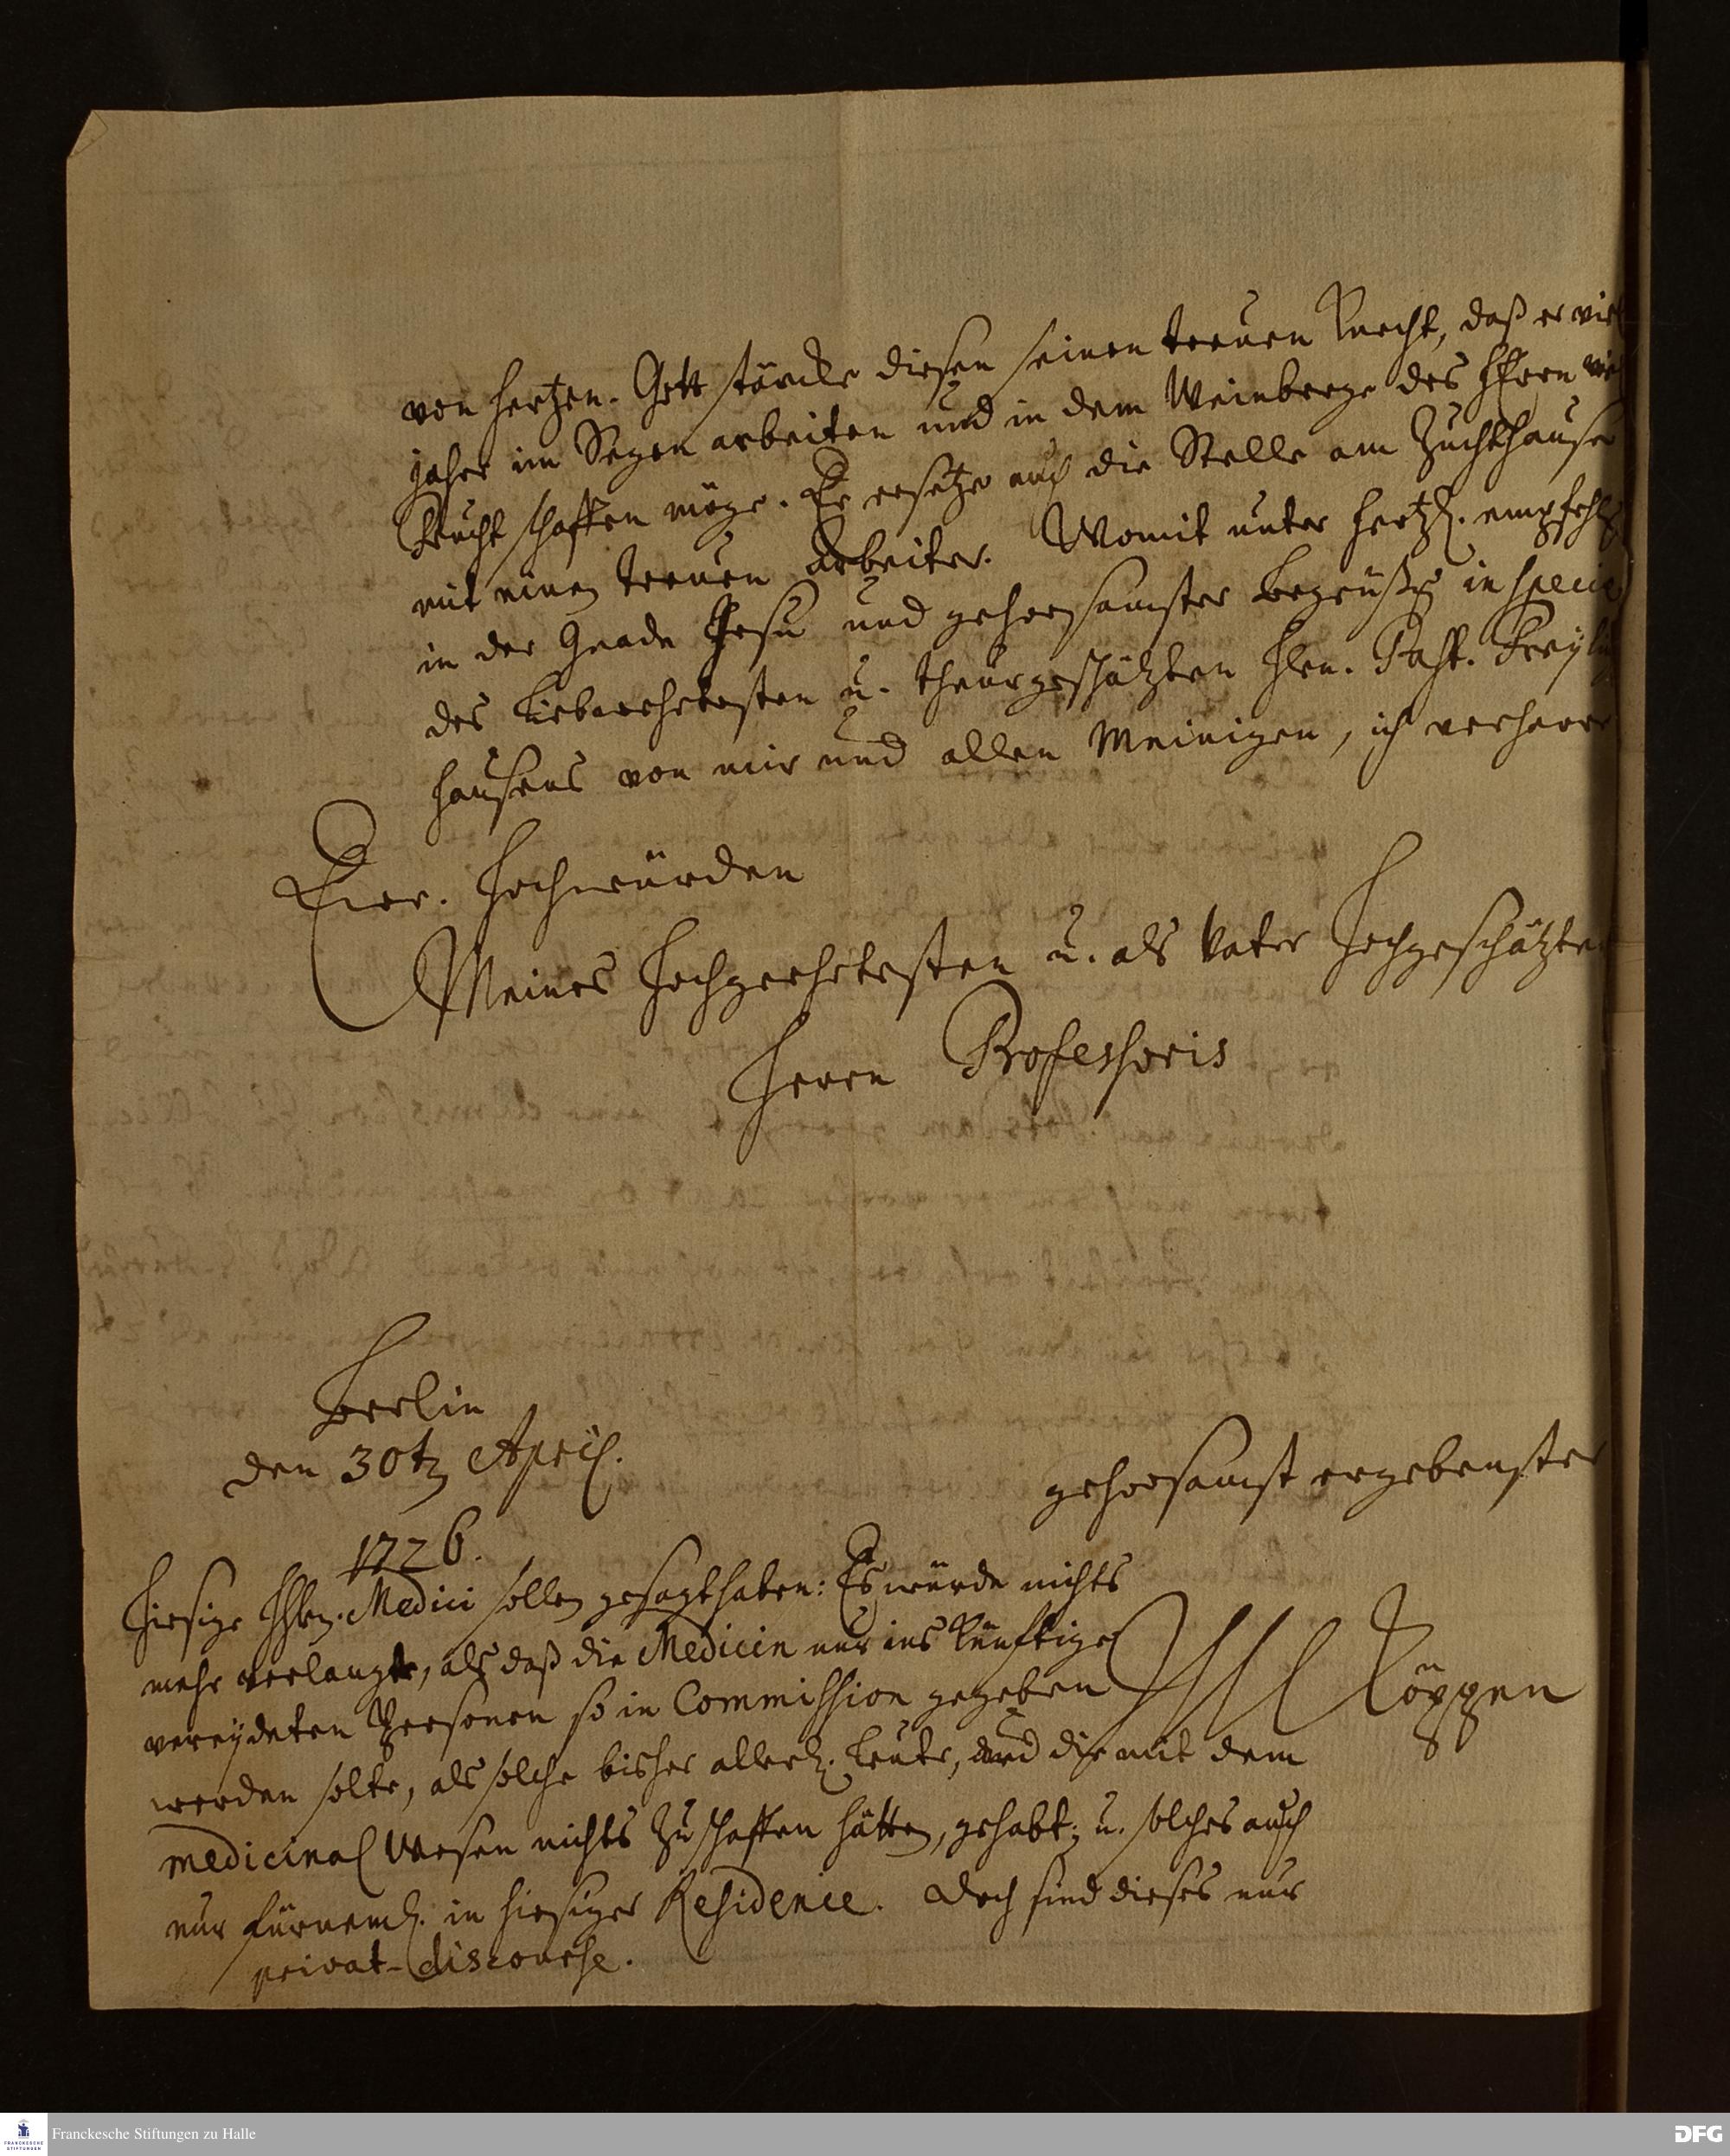 von hertzen. Gott stärcke diesen seinen treuen Knecht, daß er viel
jahre im Segen arbeiten und in dem Weinberge des HErrn viel
Frucht schaffen möge. Er ersetze auch die Stelle am Zuchthause
mit einem treuen arbeiter. Womit unter hertzl. empfehlg
in der Gnade Jesu und gehorsamster begrüßg in specie
des Liebwehrtesten u. theurgeschätzten Hrn. Past. Freyling
hausens von mir und allen Meinigen, ich verharre
Eier. Hochwürden
Meines Hochgeehrtesten u. als Vater Hochgeschätzten
Herrn Professoris
Berlin
den 30t April.
1726.
gehorsamst ergebenster
Köppen
Hiesige HHrn. Medici sollen gesagt haben: Es würde nichts
mehr verlangt, als daß die Medicin nur ins künftige
vereydeten Personen so in Commission gegeben
werden solte, als solche bisher allerh. Leute, und die mit dem
medicinal Wesen nichts zu schaffen hätten, gehabt; u. solches auch
nur fürneml. in hiesiger Residence. Doch sind dieses nur
privat-discourse.
Franckesche Stiftungen zu Halle
DFG